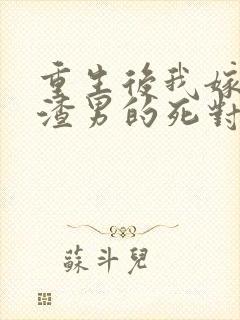 重生後我嫁
渣男的死對
蘇斗兒